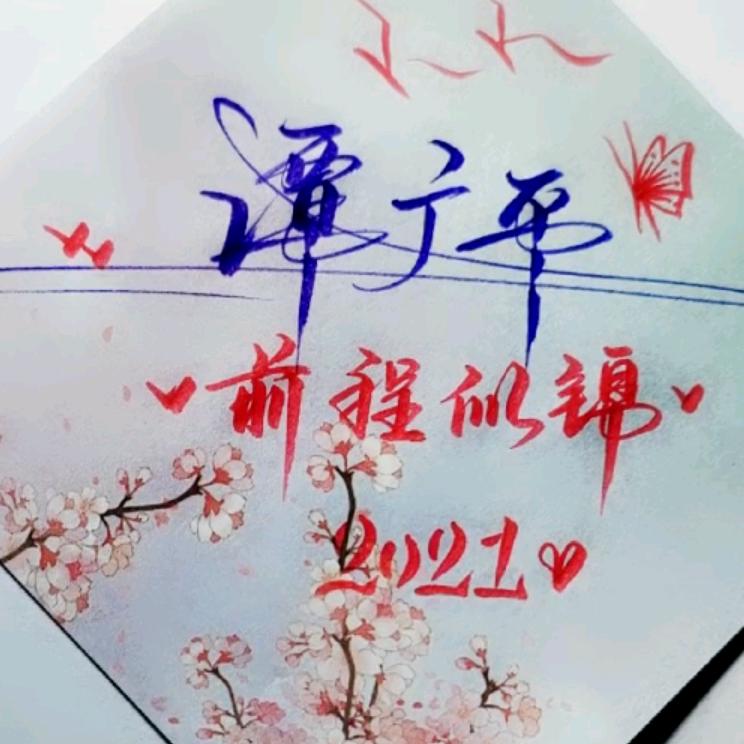 谭广平
前程似锦
2021